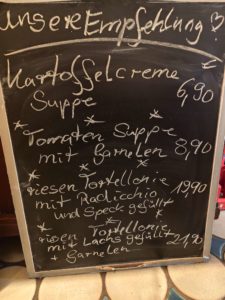 unsere Empfehlung!
€
Kartoffelcreme
Suppe 6,90
Tomaten Suppe
mit Garnelen 8,90
riesen Tortellonie
mit Radicchio 19,90
und Speck gefüllt
riesen Tortellonie
mit Lachs gefüllt
+ Garnelen 21,90